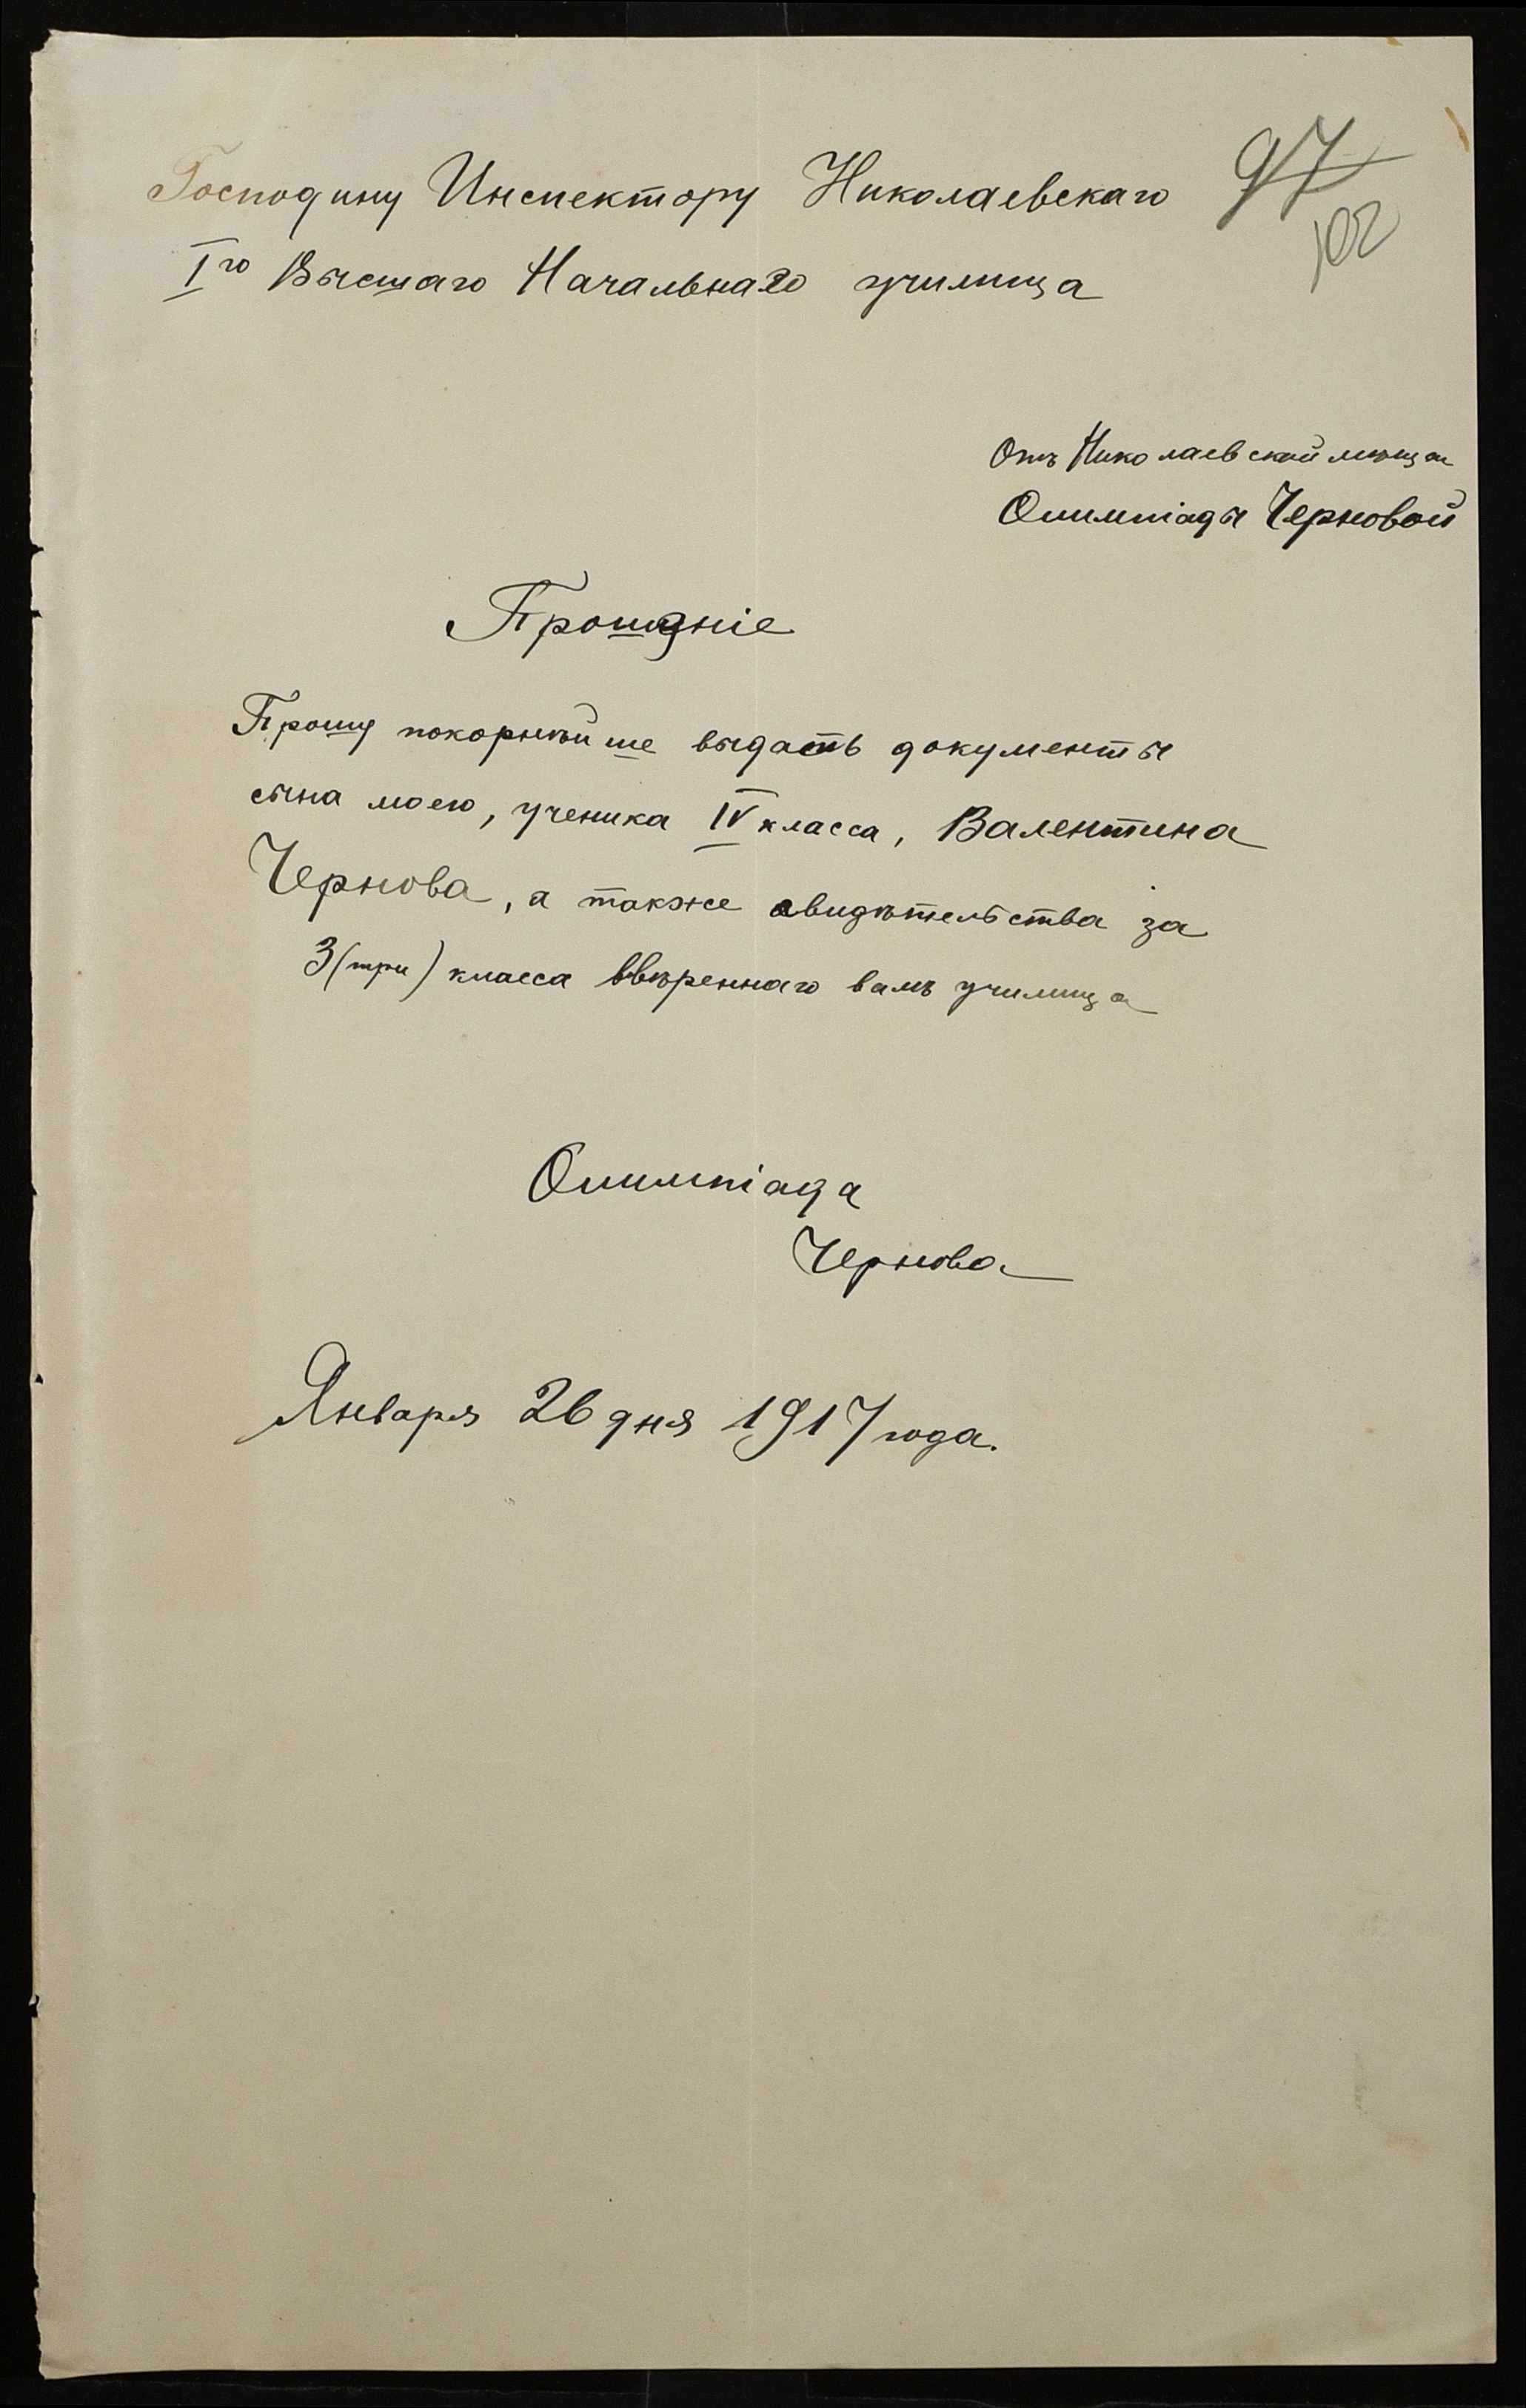 Господину Инспектору Николаевскаго
97
102
Iго Высшаго Начальнаго училища
Отъ Николаевской мѣщан
Олимпіады Черновой
Прошеніе
Прошу покорнѣйше выдать документы
сына моего, ученика IV класса, Валентина
Чернова, а также свидѣтельства за
3 (три) класса ввѣреннаго вамъ училища
Олимпіада
Чернова
Января 26 дня 1917 года.